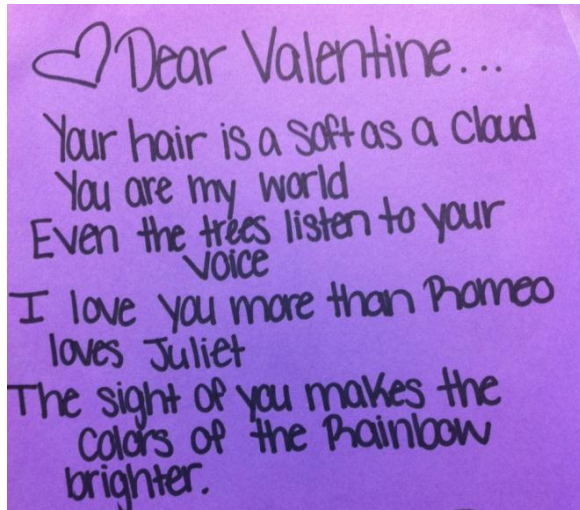 Dear Valentine...
Your hair is a soft as a cloud
You are my world
Even the trees listen to your
voice
I love you more than Romeo
loves Juliet
The sight of you makes the
colors of the Rainbow
brighter.